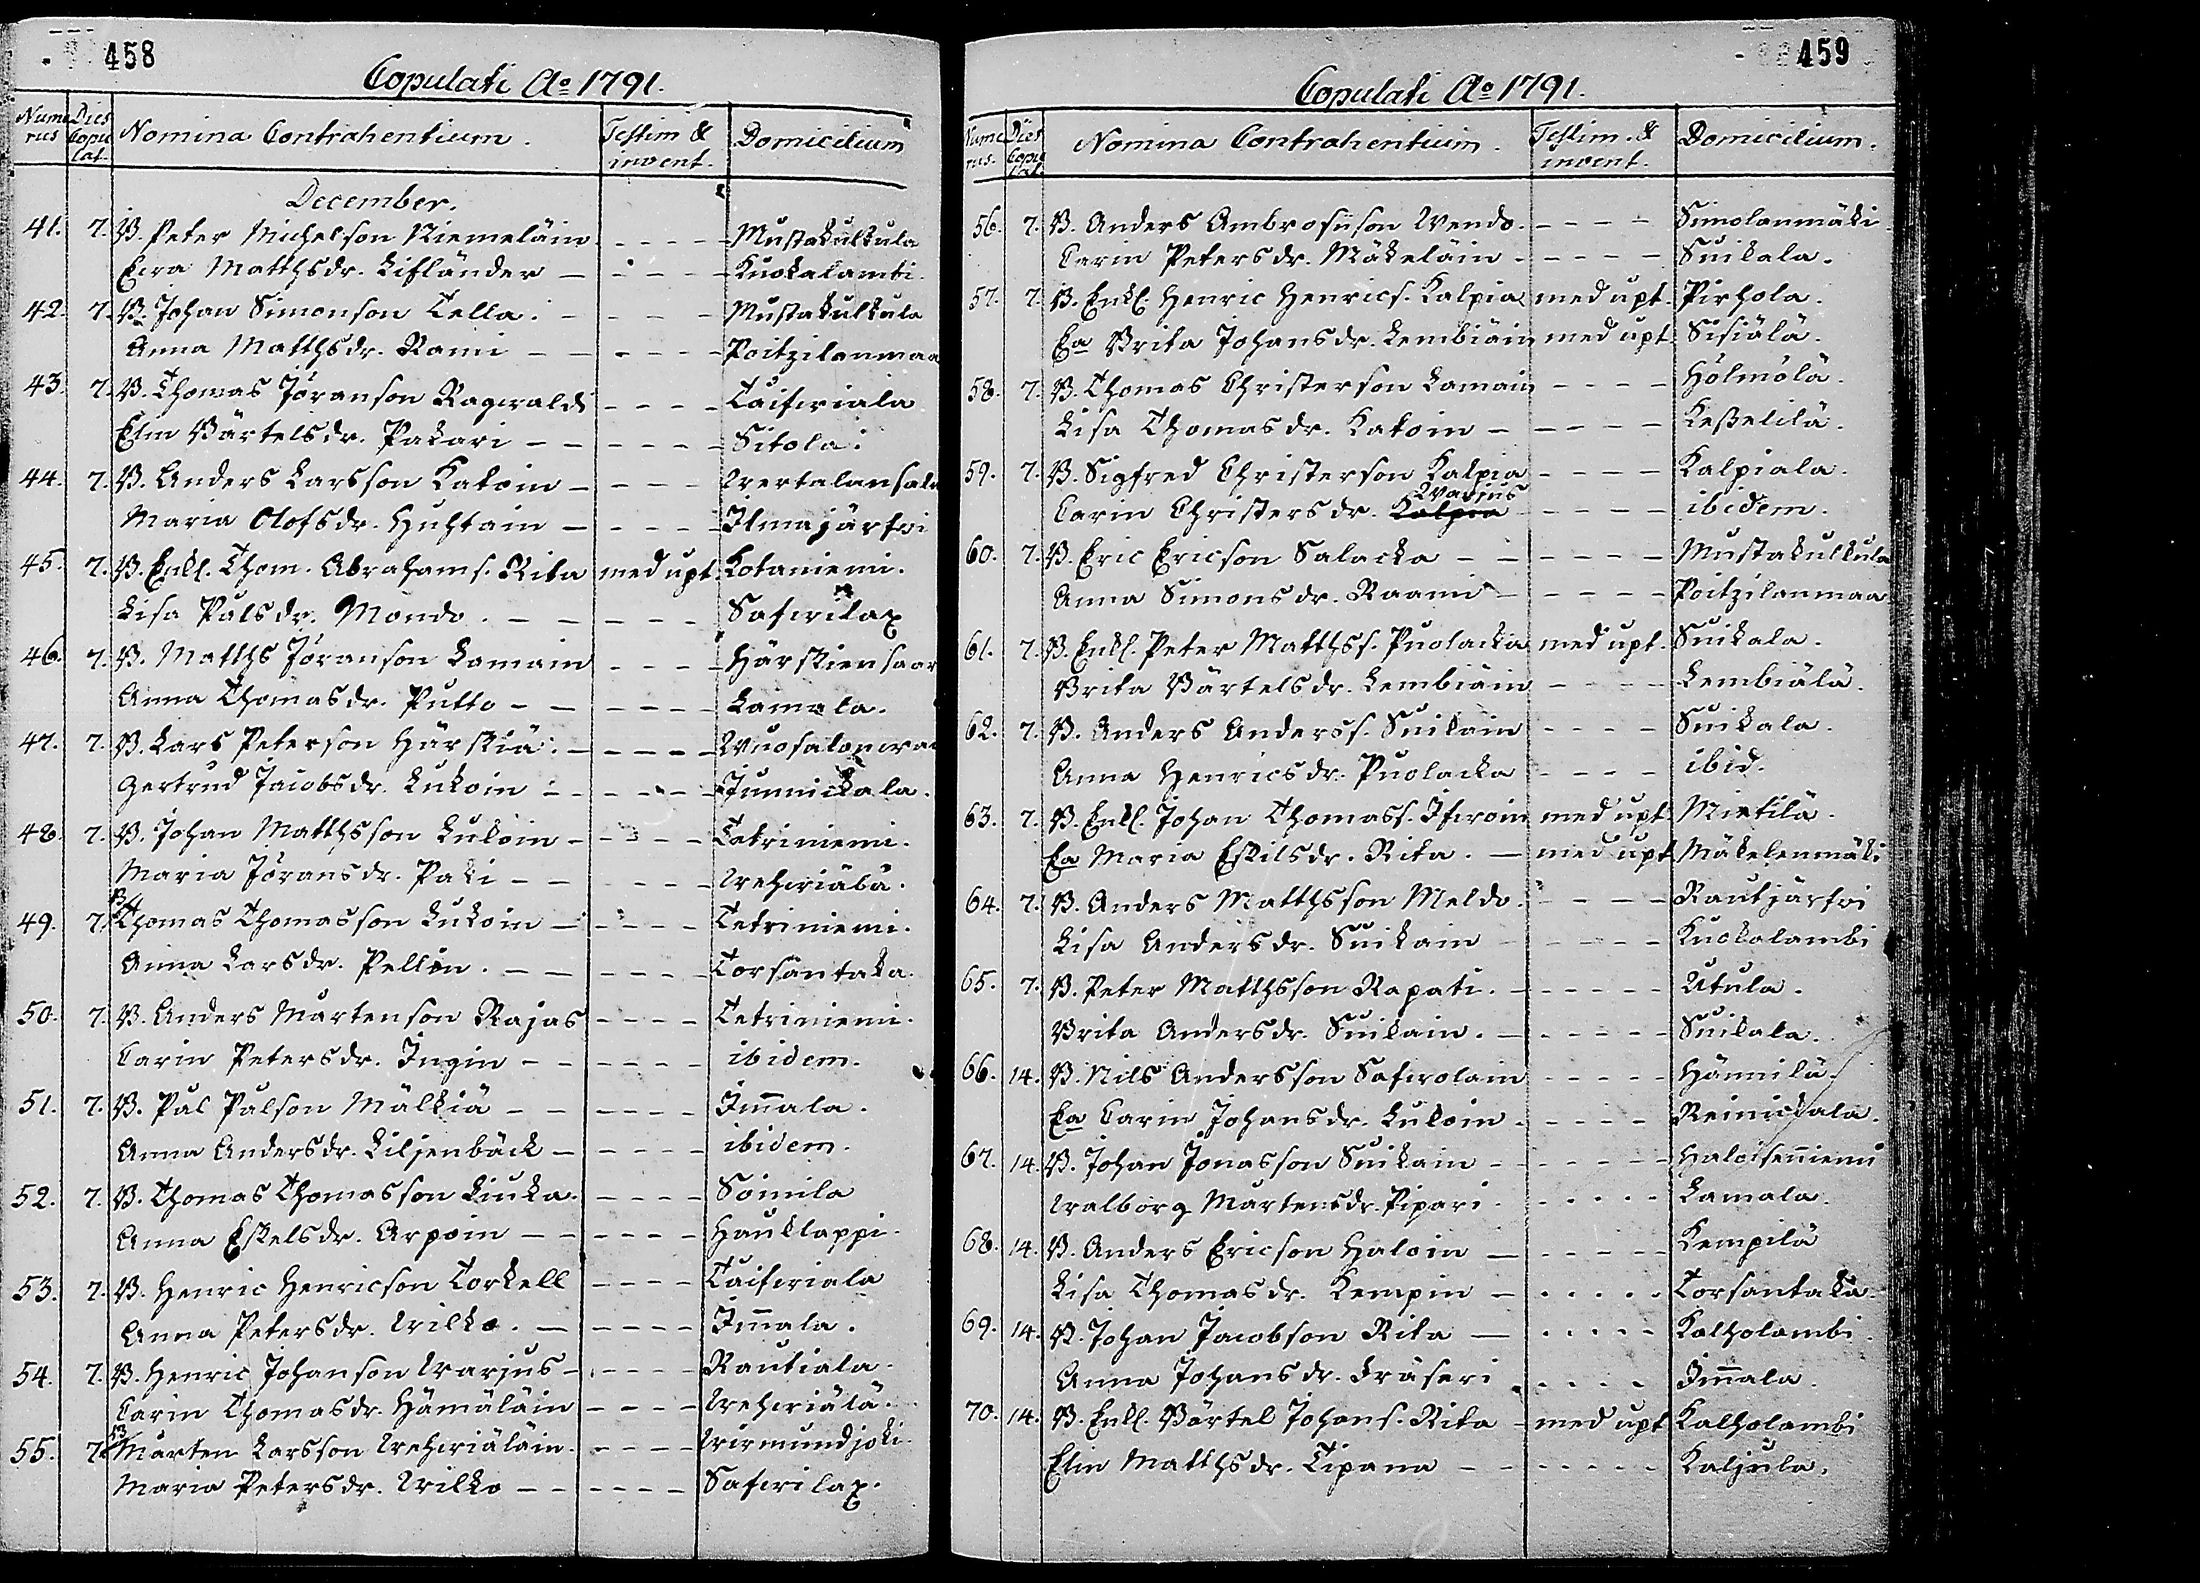 458
Copulati Ao 1791.
Numerus Dies Copulat. Nomina Contrahentium. Testim & invent. Domicilium
December.
41. 7. B. Peter Michelson Niemeläin - - - - Mustakulkula
Ewa Matthsdr. Lifländer - - - - Kuokalambi.
42. 7. B. Johan Simonson Tella. - - - - Mustakulkula
Anna Matthsdr. Rami - - - - Poitzilanmaa
43. 7. B. Thomas Jöranson Ragwaldi - - - - Taifwiala
Elin Bärtelsdr. Pakari - - - - Sitola.
44. 7. B. Anders Larsson Katoin - - - -
Maria Olofsdr. Huhtain - - - - Ilmajärfwi
45. 7. B. Enkl. Thom. Abrahams. Rita med upt. Kotaniemi.
Lisa Pålsdr. Mondo. - - - - Safwilax
46. 7. B. Matths Jöranson Lamain - - - - Härskiensaar
Anna Thomasdr. Putto - - - - Lamala.
47. 7. B. Lars Peterson Härskiä. - - - -
Gertrud Jacobsdr. Lukoin - - - - Junnickala.
48. 7. B. Johan Matthsson Lukoin - - - - Tetriniemi.
Maria Jöransdr. Paki - - - - Wehwiälä.
49. 7. B. Thomas Thomasson Lukoin - - - - Tetriniemi.
Anna Larsdr. Pellin. - - - - Torsantaka.
50. 7. B. Anders Mårtenson Rajas - - - - Tetriniemi.
Carin Petersdr. Ingin - - - - ibidem.
51. 7. B. Pål Pålson Mälkiä - - - - Im̄ala.
Anna Andersdr. Liljenbäck - - - - ibidem.
52. 7. B. Thomas Thomasson Liuka. - - - - Soimila
Anna Eskelsdr. Arpoin - - - - Hauklappi.
53. 7. B. Henric Henricson Torkell - - - - Taifwiala
Anna Petersdr. Wilko. - - - - Im̄ala.
54. 7. B. Henric Johanson Warjus - - - - Rautiala.
Carin Thomasdr. Hämäläin - - - - Wehwiälä.
55. 7. B. Mårten Larsson Wehwiäläin. - - - - Wirmundjoki.
Maria Petersdr. Wilko - - - - Safwilax.
459
Copulati Ao 1791.
Numerus. Dies Copulat. Nomina Contrahentium. Testim. & invent. Domicilium.
56. 7. B. Anders Ambrosiison Wendo. - - - - Simolanmäki.
Carin Petersdr. Mäkeläin. - - - - Suikala.
57. 7. B. Enkl. Henric Henrics. Kalpia med upt. Pirhola.
Ea Brita Johansdr. Lembiäin med upt. Sisiälä.
58. 7. B. Thomas Christerson Lamain - - - - Hölmölä.
Lisa Thomasdr. Katoin - - - - Keßelilä.
59. 7. B. Sigfred Christerson Kalpia - - - - Kalpiala.
Warjus
Carin Christersdr. Kalpia - - - - ibidem.
60. 7. B. Eric Ericson Salacka - - - - Mustakulkula
Anna Simonsdr. Raami - - - - Poitzilanmaa
61. 7. B. Enkl. Peter Matthss. Puolacka med upt. Suikala.
Brita Bärtelsdr. Lembiäin - - - - Lembiälä.
62. 7. B. Anders Anderss. Suikain - - - - Suikala.
Anna Henricsdr. Puolacka - - - - ibid.
63. 7. B. Enkl. Johan Thomass. Ifwoin med upt. Mietilä.
Ea Maria Eskilsdr. Rita. - med upt Mäkelenmäki
64. 7. B. Anders Matthsson Meldo. - - - - Rautjärfwi
Lisa Andersdr. Suikain - - - - Kuokalambi
65. 7. B. Peter Matthsson Rapati. - - - - Utula.
Brita Andersdr. Suikain. - - - - Suikala.
66. 14. B. Nils Andersson Safwolain - - - - Hännilä.
Ea Carin Johansdr. Lukoin. - - - - Reinickala.
67. 14. B. Johan Jonasson Suikain - - - - Haloiseniemi
Walborg Mårtensdr. Pipari. - - - - Lamala.
68. 14. B. Anders Ericson Haloin - - - - Kempilä
Lisa Thomasdr. Kempin - - - - Torsantaka.
69. 14. B. Johan Jacobson Rita - - - - Kalholambi.
Anna Johansdr. Fräseri - - - - Im̄ala.
70. 14. B. Enkl. Bärtel Johans. Rita - med upt Kalholambi
Elin Matthsdr. Tipana - - - - Kaljula.